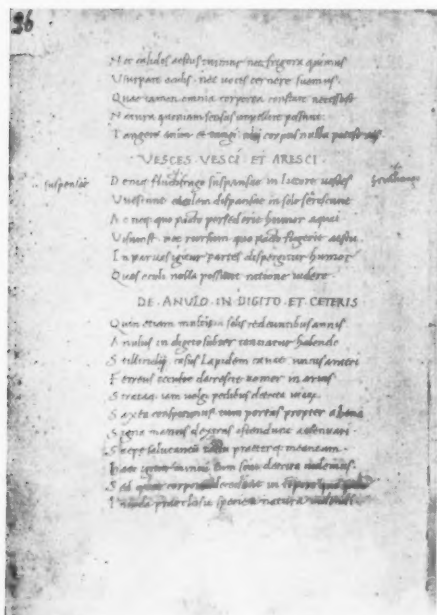 26
Nec calidos aestus tuimur nec frigora quimus
Usurpare oculis. nec voces cernere suemus.
Quae tamen omnia corporea constare necessest
Natura quoniam sensus impellere possunt.
Tangere enim et tangi nisi corpus nulla potest res
VESCES VESCI ET ARESCI
suspensae Denique fluctifrago suspensae in litore uestes
Uuescunt eaedem dispansae in sole serescunt
At neq; quo pacto persederit humor aquai
Visumst. nec rursum quo pacto fugerit aestu.
In paruas igitur partes dispergitur humor
Quas oculi nulla possunt ratione uidere
DE ANULO IN DIGITO ET CETERIS
Quin etiam multis solis redeuntibus annis
Anulus in digito subter tenuatur habendo
Stillicidij casus lapidem cauat uncus aratri
Ferreus occulte decrescit uomer in aruis
Strataq; iam uolgi pedibus detrita
Saxea conspicimus. tum portas propter ahena
Signa manus dextras ostendunt adtenuari.
Saepe salutantum tactu praeterq; meantum.
Haec igitur minui cum sint detrita uidemus.
Sed quae corpora decedant in tempore
Inuida praeclusit speciem natura uidendi.